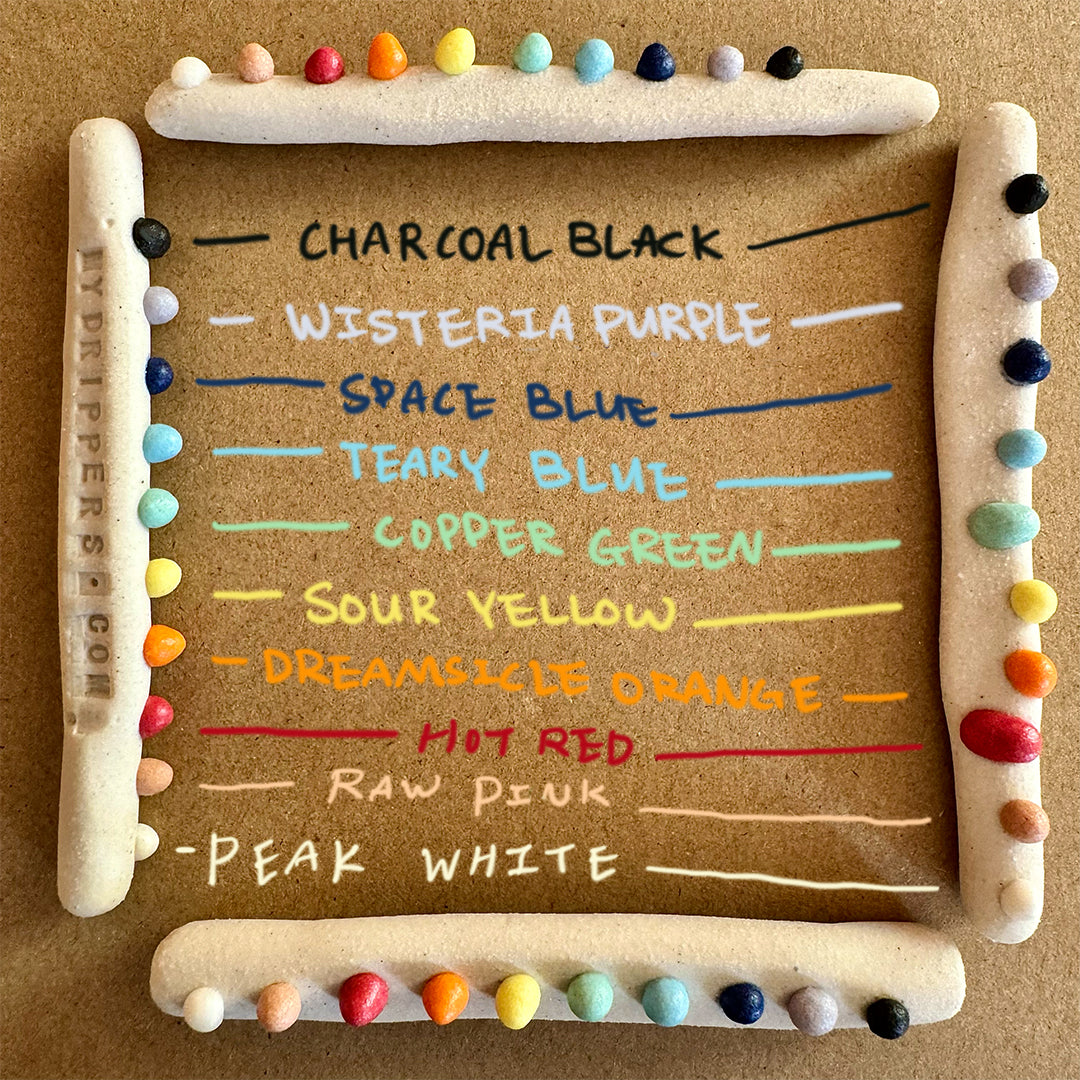 CHARCOAL BLACK
WISTERIA PURPLE
SPACE BLUE
TEARY BLUE
COPPER GREEN
SOUR YELLOW
DREAMSICLE ORANGE
HOT RED
RAW PINK
PEAK WHITE
HYDRIPPERS.COM